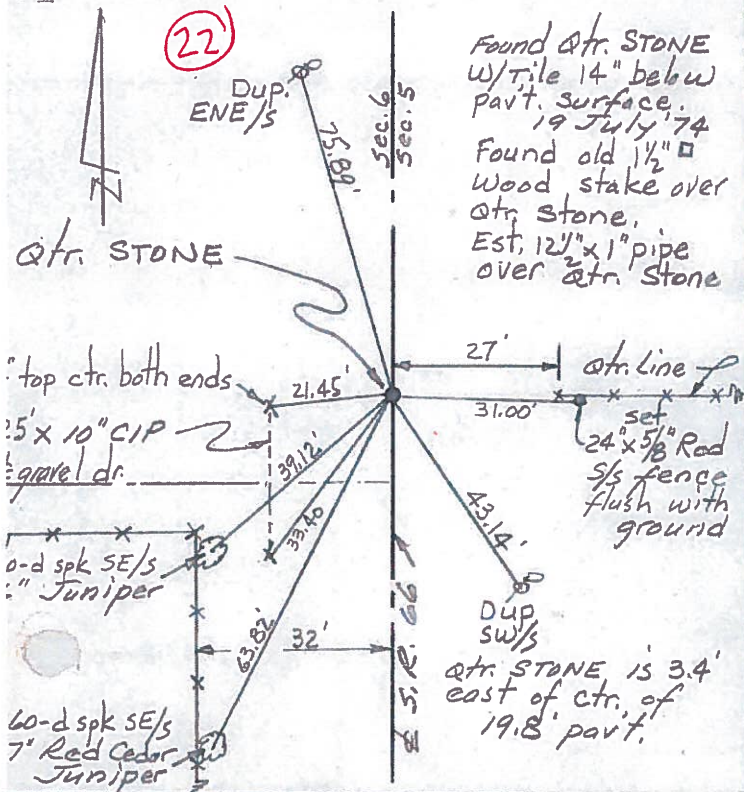 22'
Dup.
ENE/s
75.89'
Sec. 6
Sec. 5
Found Qtr. STONE
W/Tile 14" below
pav't. surface.
19 July '74
Found old 1½" □
Wood stake over
Qtr. Stone.
Est. 12½" x 1" pipe
over Qtr. Stone
N
Qtr. STONE
" top ctr. both ends
21.45'
27'
Qtr. Line
31.00'
25' x 10" CIP
gravel dr.
39.12'
33.40
set
24" x 5/8" Rod
S/s fence
flush with
ground
43.14'
0-d spk SE/s
" Juniper
63.82'
32'
S.R. 66
Dup
SW/s
Qtr. STONE is 3.4'
east of ctr. of
19.8' pav't.
60-d spk SE/s
7" Red Cedar
Juniper